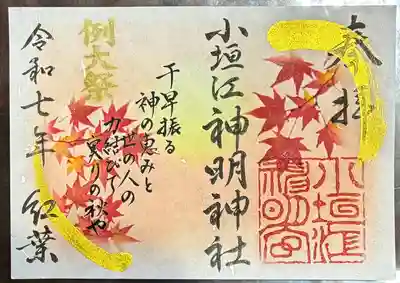 奉拝
小垣江神明神社
小垣江
神明宮
千早振る
神の恵みと
世の人の
力結びて
実りの秋や
例大祭
令和七年 紅葉